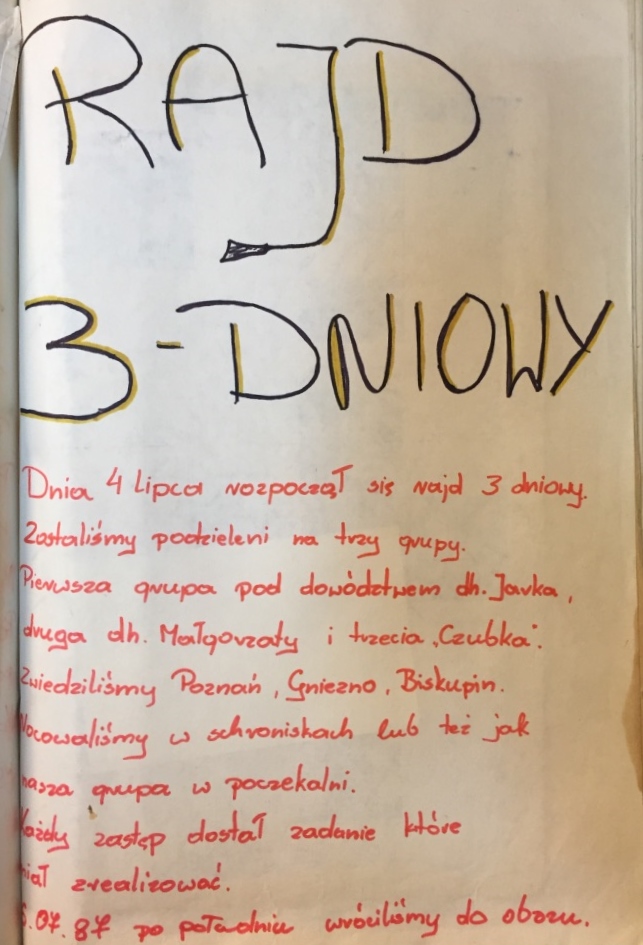 RAJD
3-DNIOWY
Dnia 4 lipca rozpoczął się rajd 3 dniowy.
Zostaliśmy podzieleni na trzy grupy.
Pierwsza grupa pod dowództwem dh. Jarka,
druga dh. Małgorzaty i trzecia „Czubka".
Zwiedziliśmy Poznań, Gniezno, Biskupin.
Nocowaliśmy w schroniskach lub też jak
nasza grupa w poczekalni.
Każdy zastęp dostał zadanie które
miał zrealizować.
6.07.87 po południu wróciliśmy do obozu.